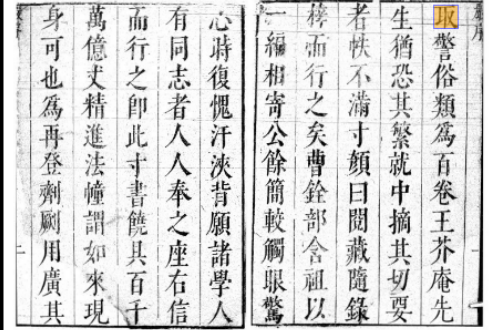 取警俗類爲百卷王芥庵先
生猶恐其繁就中摘其切要
者帙不滿寸顏曰閱藏隨錄
梓而行之矣曹銓部含祖以
一編相寄公餘簡較觸眼驚
心時復愧汗浹背願諸學人
有同志者人人奉之座右信
而行之卽此寸書饒其百千
萬億丈精進法幢謂如來現
身可也爲再登劑劂用廣其